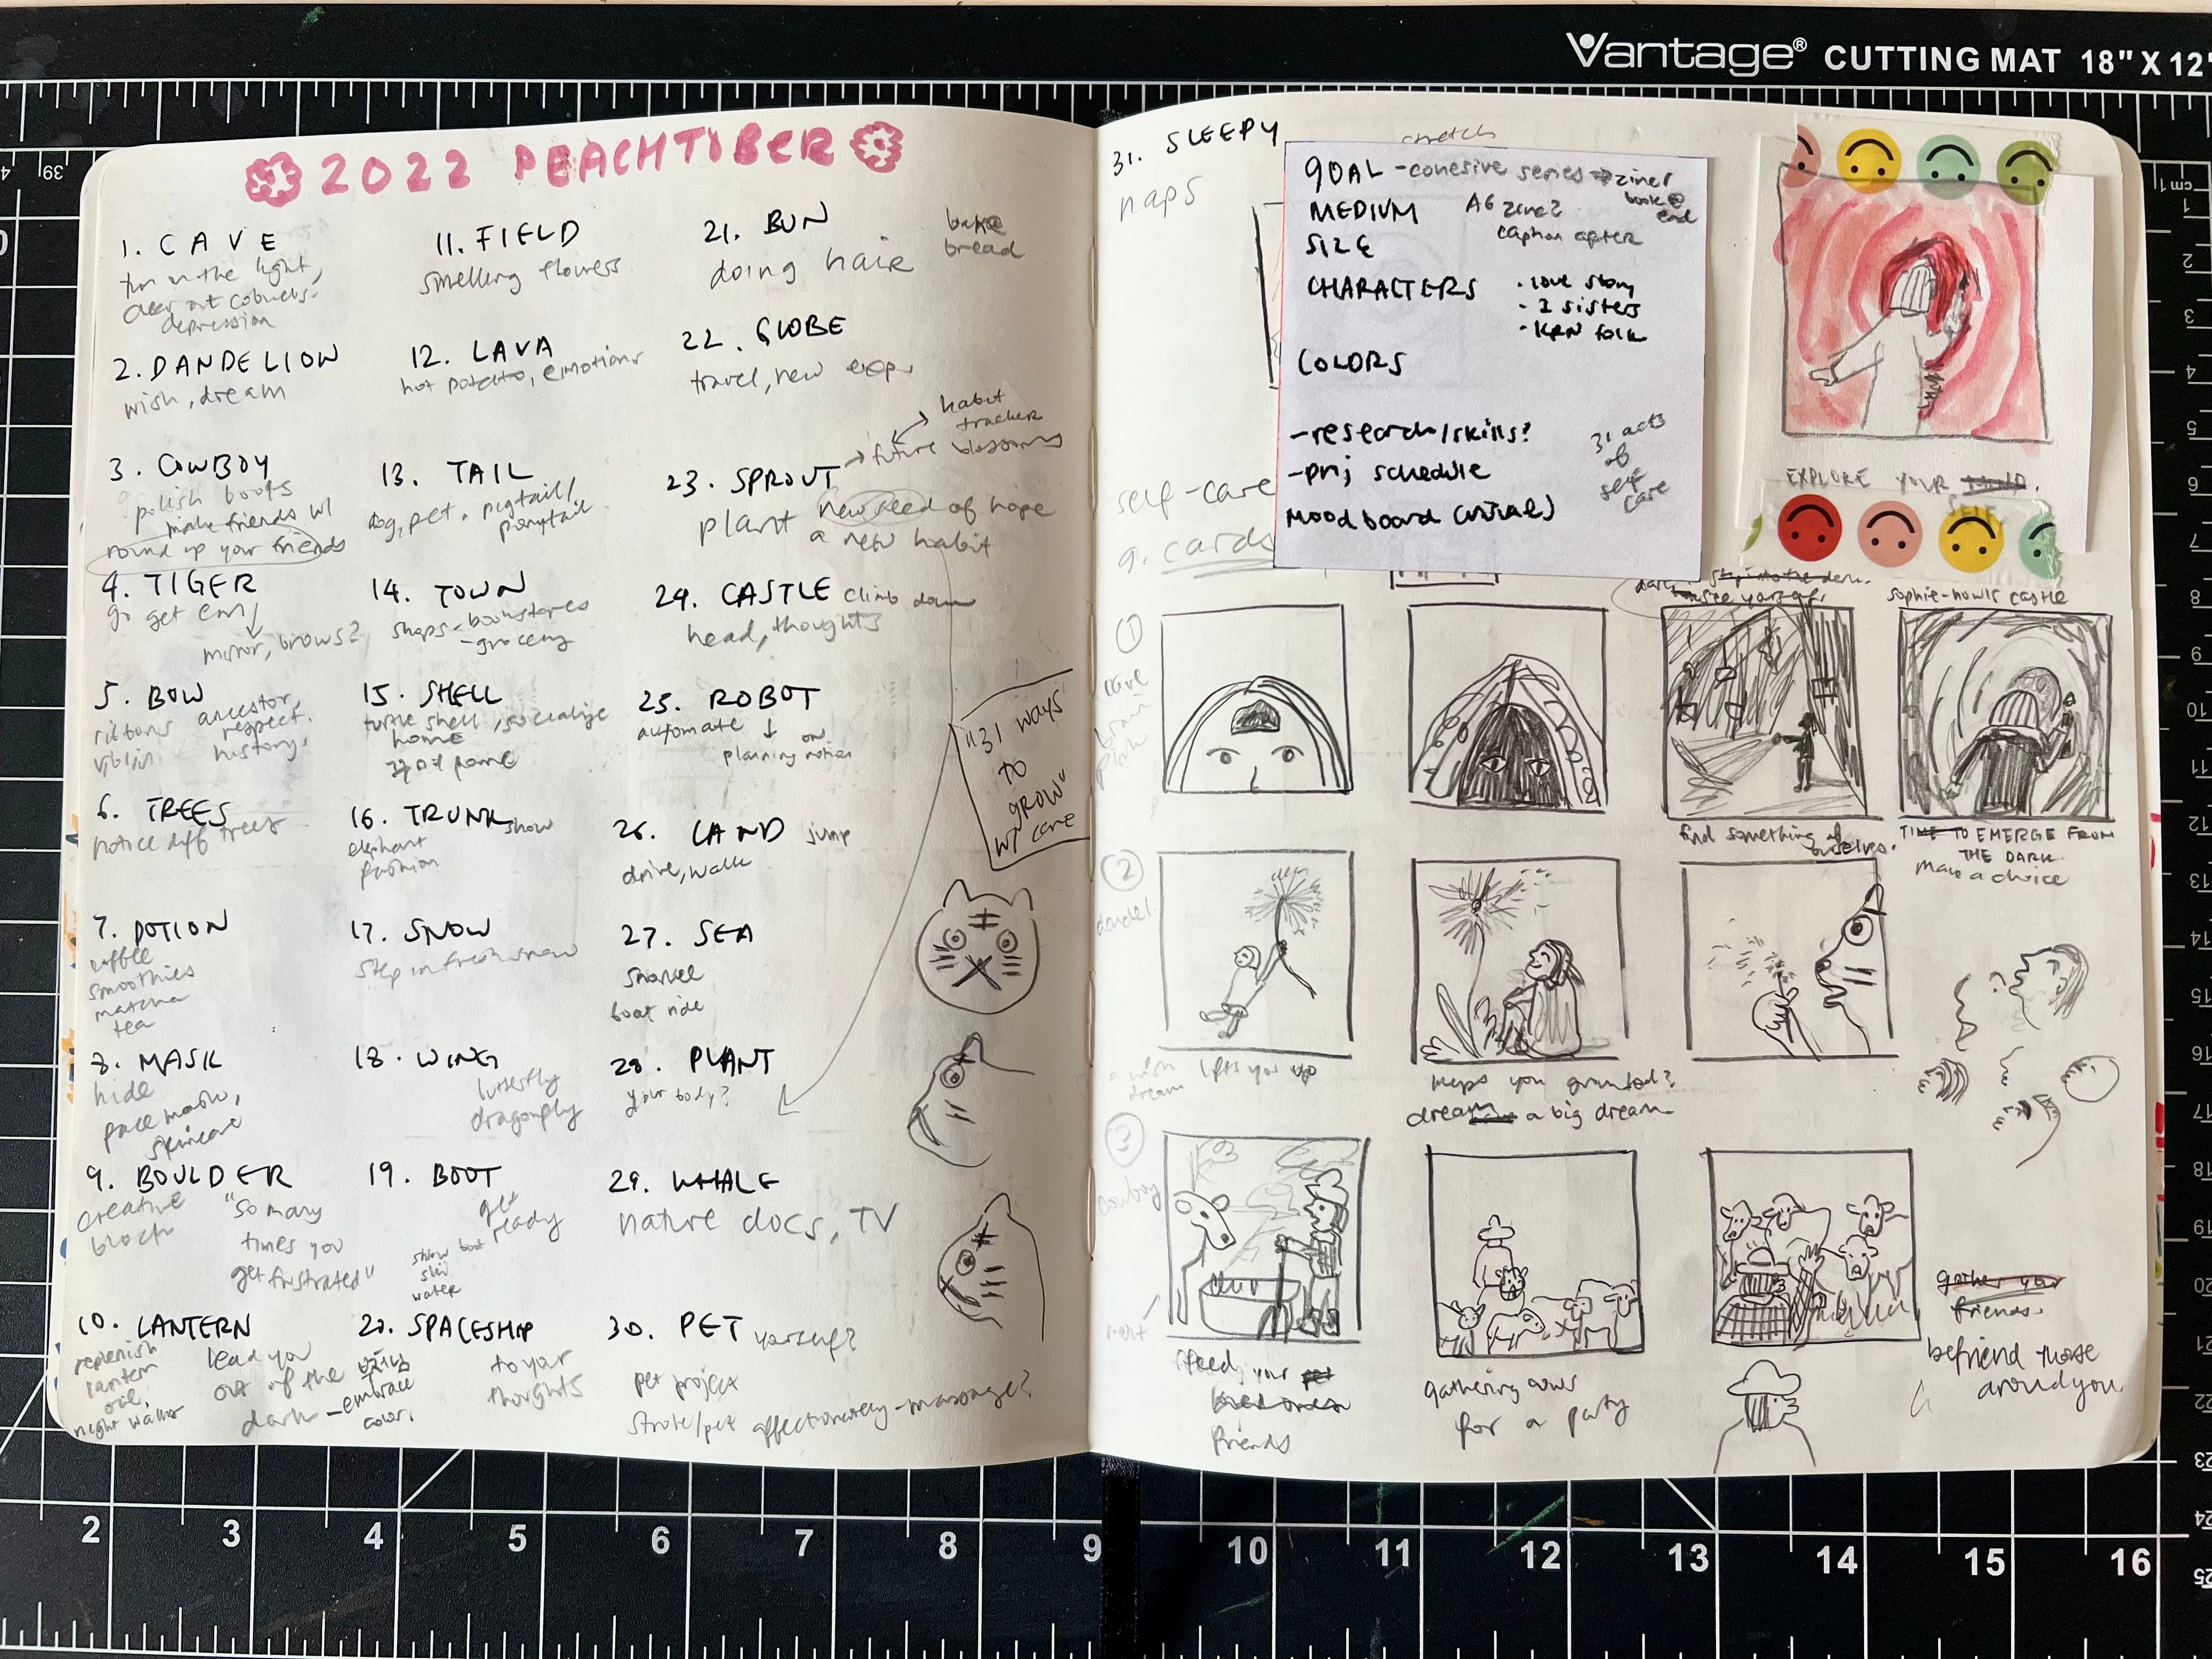 Vantage® CUTTING MAT 18" X 12"
2022 PEACHTOBER
1. CAVE
turn on the light,
clear out cobwebs.
depression
2. DANDELION
wish, dream
3. COWBOY
polish boots
make friends w/
round up your friends
4. TIGER
go get em/
mirror, brows?
5. BOW
ribbons
ancestor,
respect.
history.
6. TREES
notice diff trees
7. POTION
coffee
smoothies
matcha
tea
8. MASK
hide
face mask,
skincare
9. BOULDER
creative
block
"so many
times you
get frustrated"
10. LANTERN
replenish
lantern
oil
night walks
lead you
out of the
dark
11. FIELD
smelling flowers
12. LAVA
hot potato, emotions
13. TAIL
dog, pet, pigtail/
ponytail
14. TOWN
shops - bookstores
- grocery
15. SHELL
turtle shell, socialize
home
16. TRUNK show
elephant
fashion
17. SNOW
step in fresh snow
18. WING
butterfly
dragonfly
19. BOOT
get
ready
snow boot
ski
water
20. SPACESHIP
to your
thoughts
- embrace
color.
21. BUN
doing hair
bake
bread
22. GLOBE
travel, new exp.
23. SPROUT
→ future blossoms
habit
tracker
plant new seed of hope
a new habit
24. CASTLE climb down
head, thoughts
25. ROBOT
automate
planning on
notion
"31 ways
TO
GROW"
w/ care
26. LAND jump
drive, walk
27. SEA
snorkel
boat ride
28. PLANT
your body?
29. WHALE
nature docs, TV
30. PET yourself?
pet project
stroke/pet affectionately - massage?
31. SLEEPY
stretch
naps
self-care
cards
GOAL - cohesive series → zine/
book @
end
MEDIUM
A6 zine?
caption after
SIZE
CHARACTERS
· love story
- 2 sisters
· KRN folk
COLORS
- research/skills?
- proj schedule
Mood board (visual)
31 acts
of
self
care
EXPLORE YOUR MIND.
SELF.
sophie-howls castle
1
cave
brain
pink
find something of
ourselves.
TIME TO EMERGE FROM
THE DARK
make a choice
2
dandel.
a wish
dream
lifts you up
helps you granted?
dream a big dream
3
cowboy
feed your pet
friends
gathering cows
for a party
gather your
friends.
befriend those
around you
2 3 4 5 6 7 8 9 10 11 12 13 14 15 16
cm 1 2 3 4 5 6 7 8 9 10 11 12 13 14 15 16 17 18 19 20 21 22 23 24 25
39